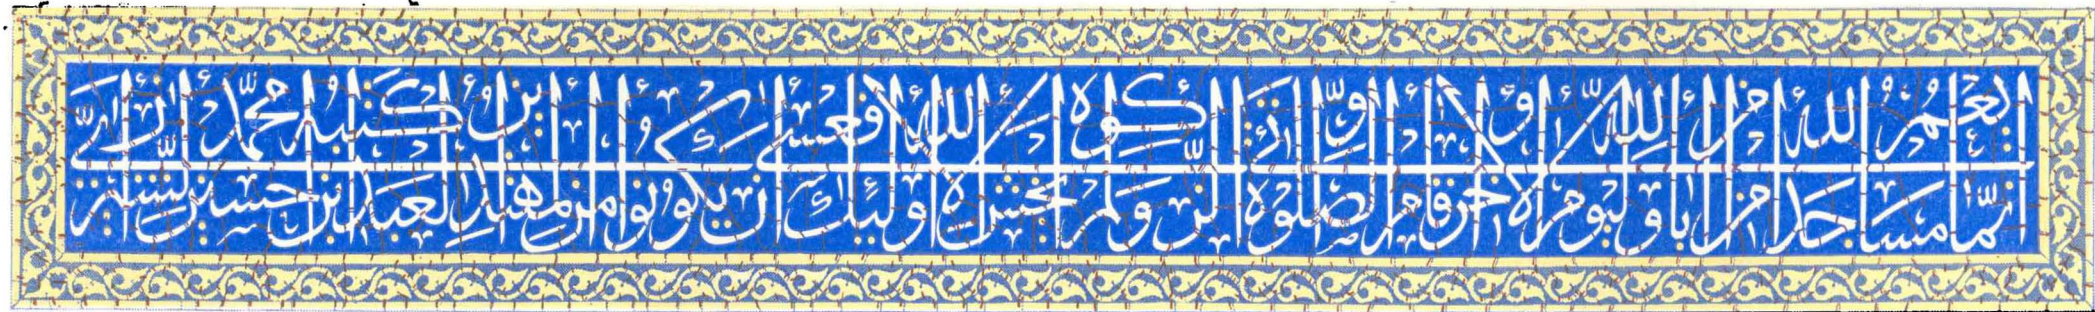 إنما يعمر مساجد الله من آمن بالله واليوم الآخر وأقام الصلوة وآتى الزكوة ولم يخش إلا الله فعسى أولئك أن يكونوا من المهتدين كتبه العبد محمد بن حسين